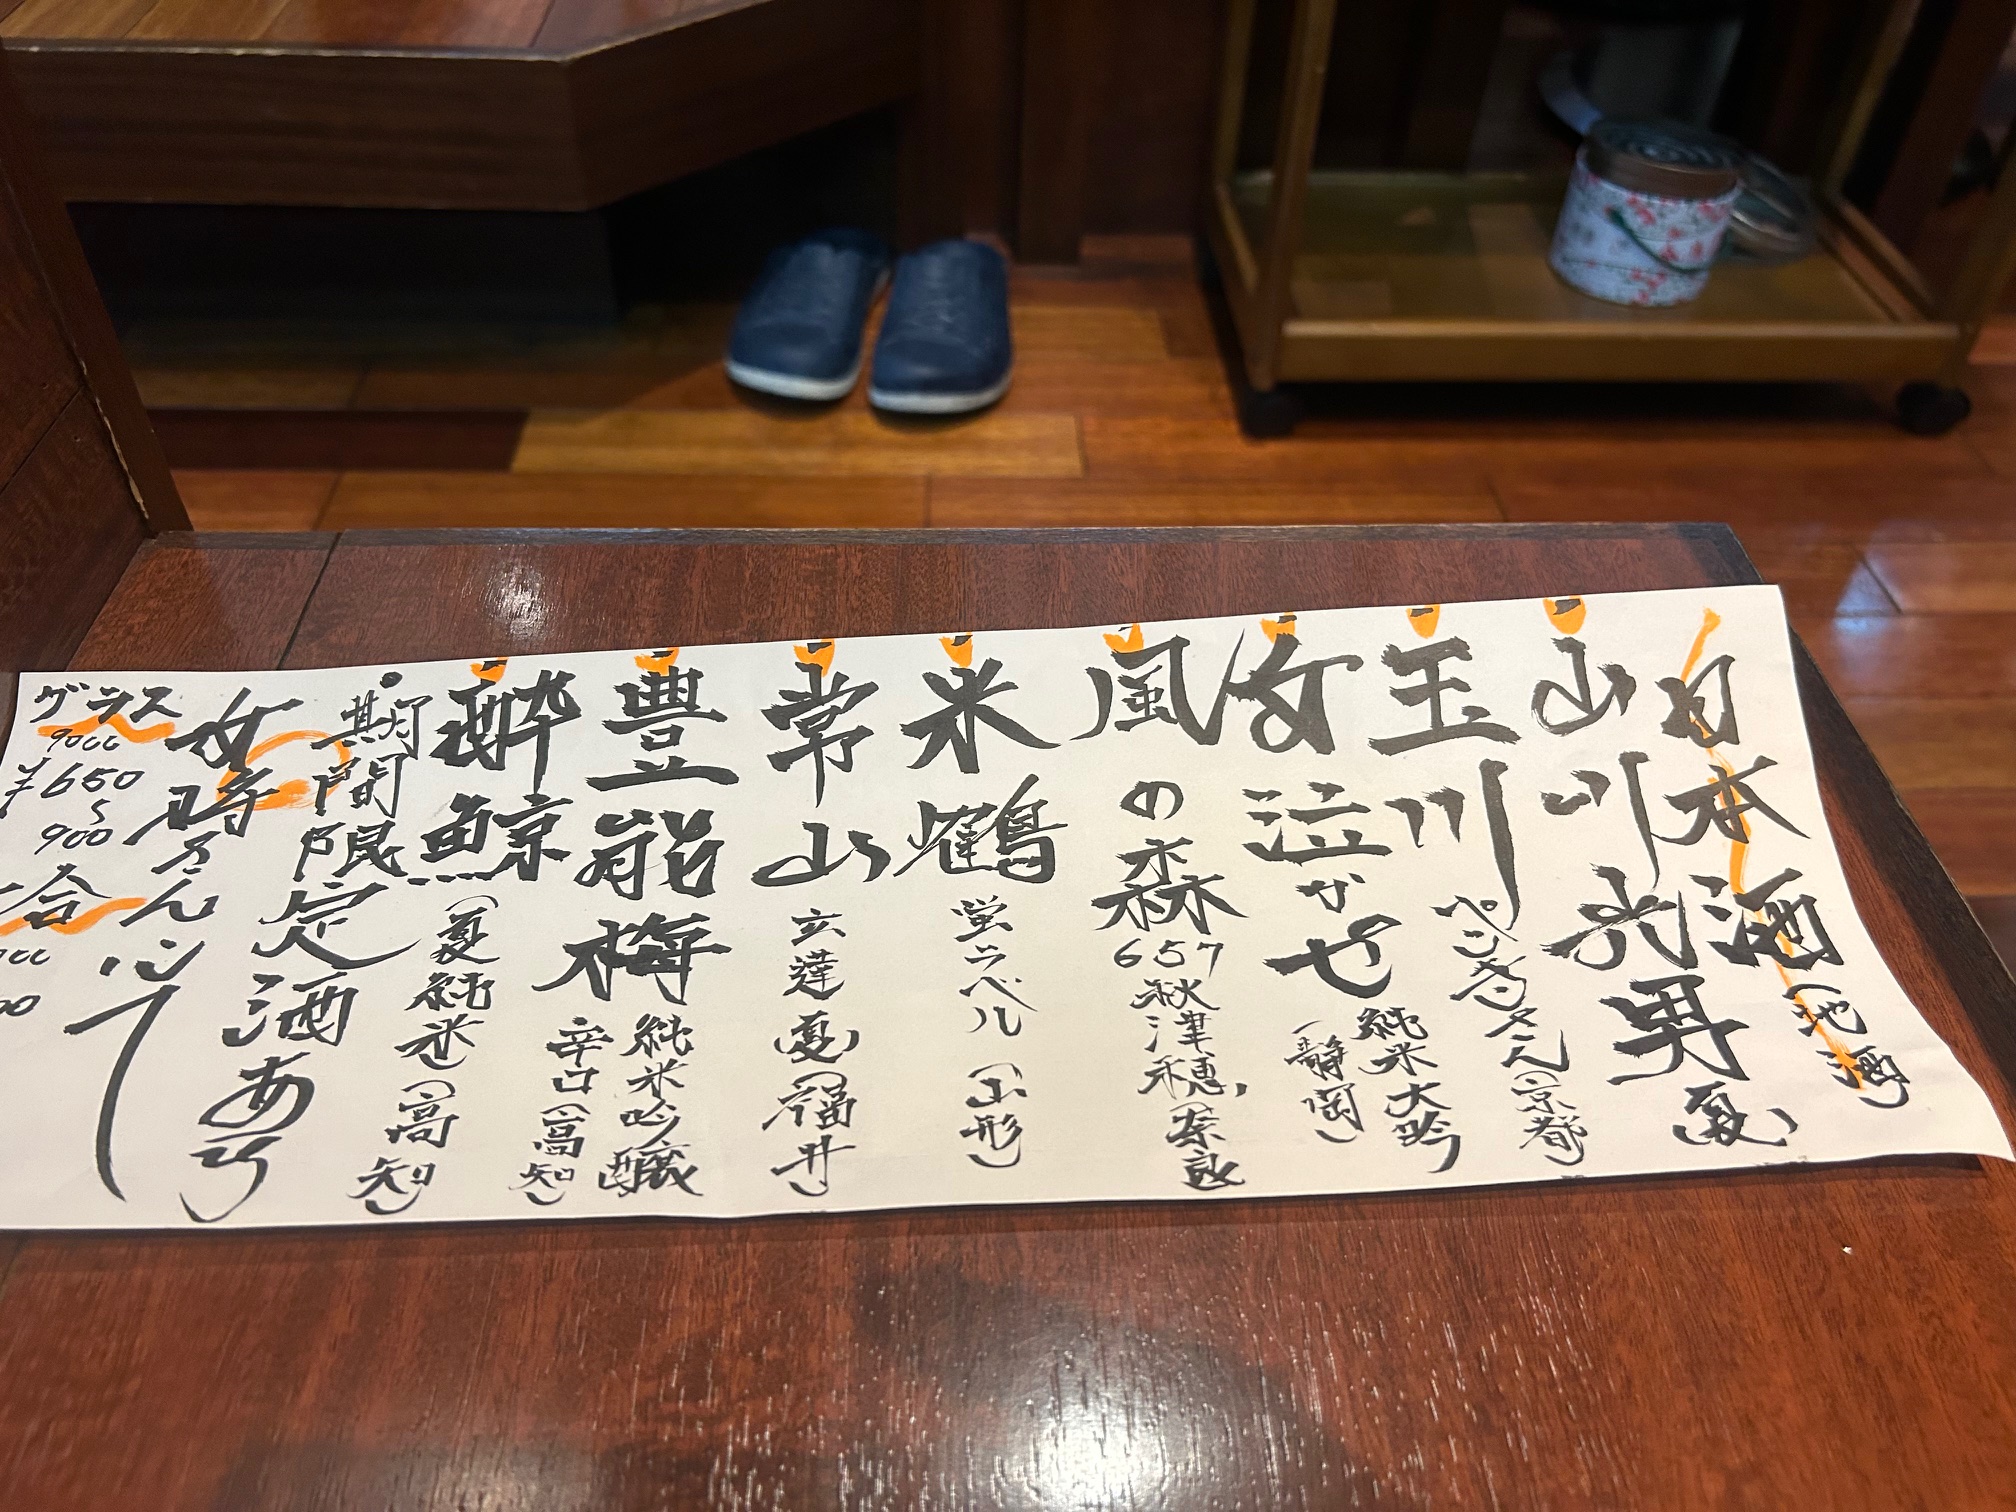 日本酒(地酒)
山川光男(夏)
玉川 ペンギンタン(京都)
女泣かせ 純米大吟(静岡)
風の森 657秋津穂(奈良)
米鶴 蛍ラベル(山形)
常山 立達(夏)(福井)
豊能梅 純米吟醸 辛口(高知)
酔鯨(夏純米)(高知)
期間限定酒あり
グラス
90cc
¥650
〜
900
一合